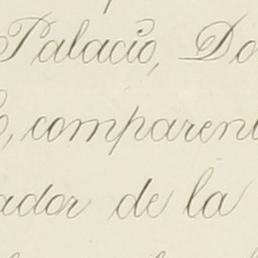 Palacio, Do
, comparen
ador de la